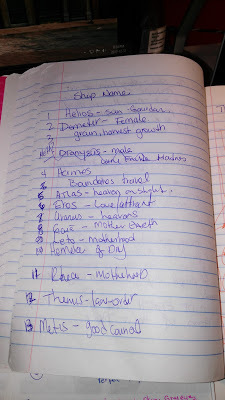 Ship Name
1 Helios - Sun Guardian
2 Demeter - Female
grain, harvest growth
Dionysus - male
4 Hermes
Boundaries travel
5 Atlas - heaven on sight,
6 Eros - Love
7 Uranus - heavens
8 Gaia - Mother Earth
Leto - motherhood
Hemera of Day
11 Rhea - Motherhood
12 Themis - law-order
13 Metis - good Councel